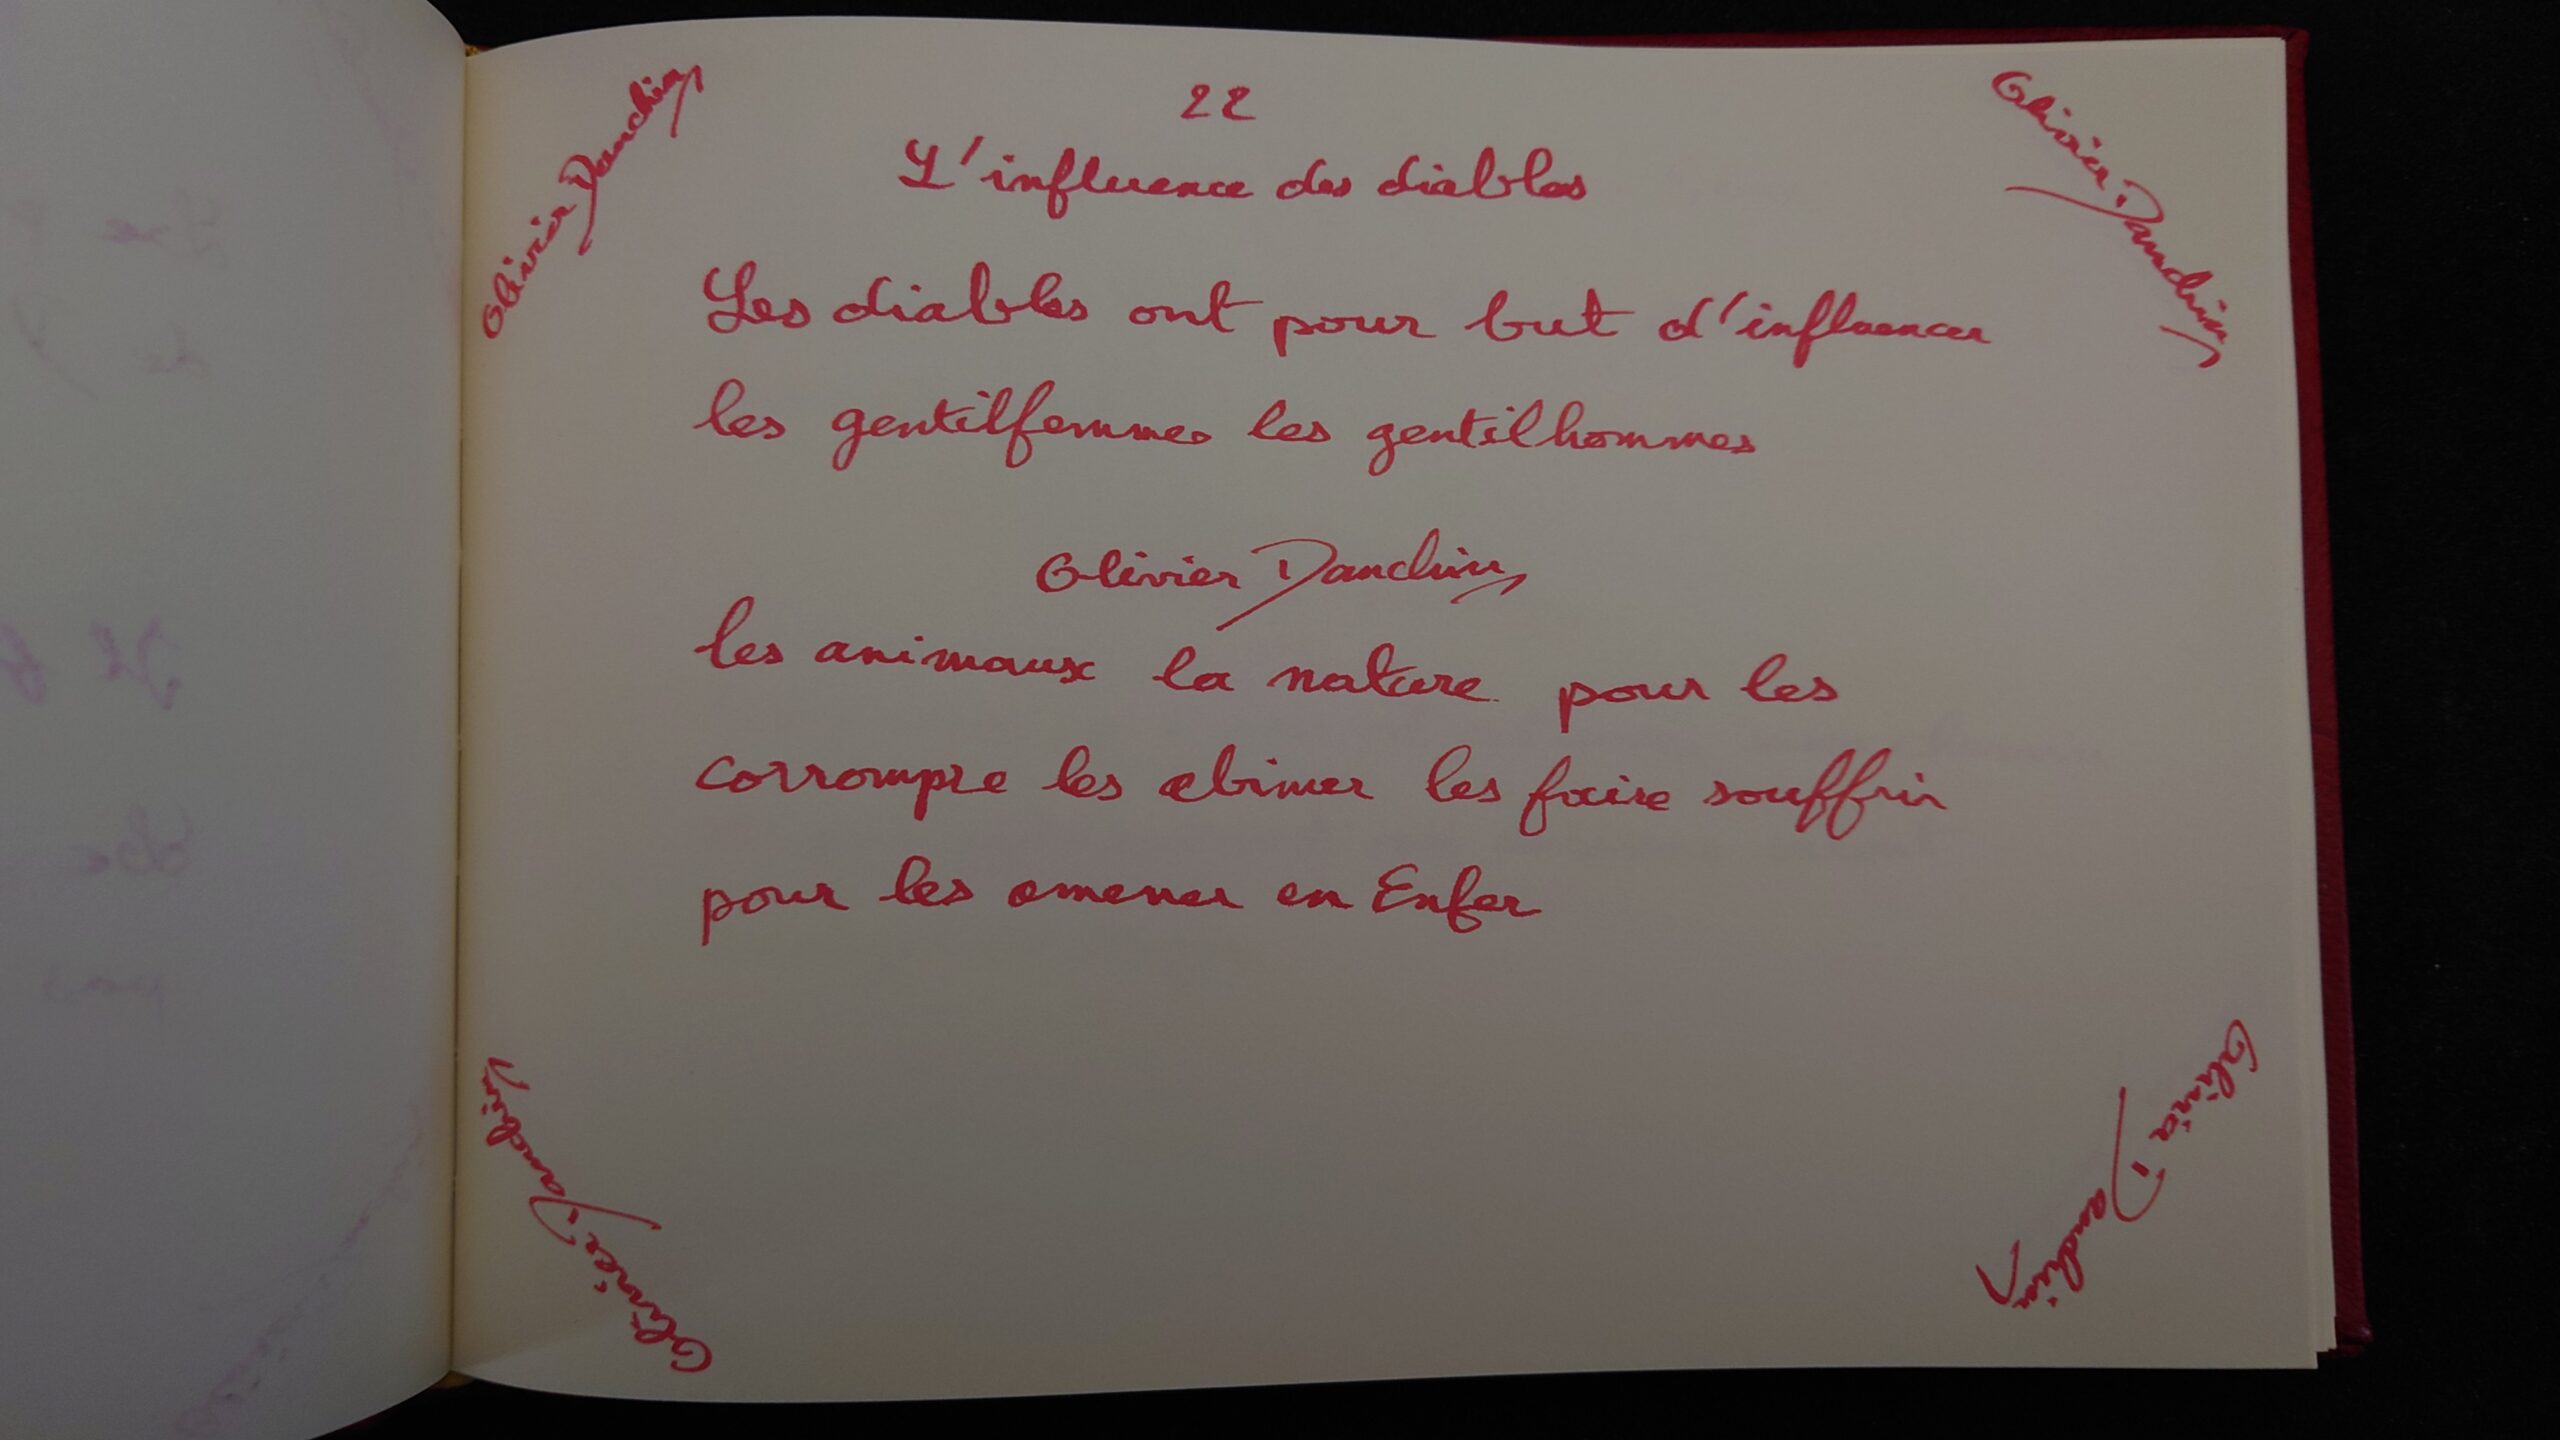 22
L'influence des diables
Les diables ont pour but d'influencer
les gentilfemmes les gentilhommes
Olivier Danchin
les animaux la nature pour les
corrompre les abimer les faire souffrir
pour les amener en Enfer
Olivier Danchin
Olivier Danchin
Olivier Danchin
Olivier Danchin